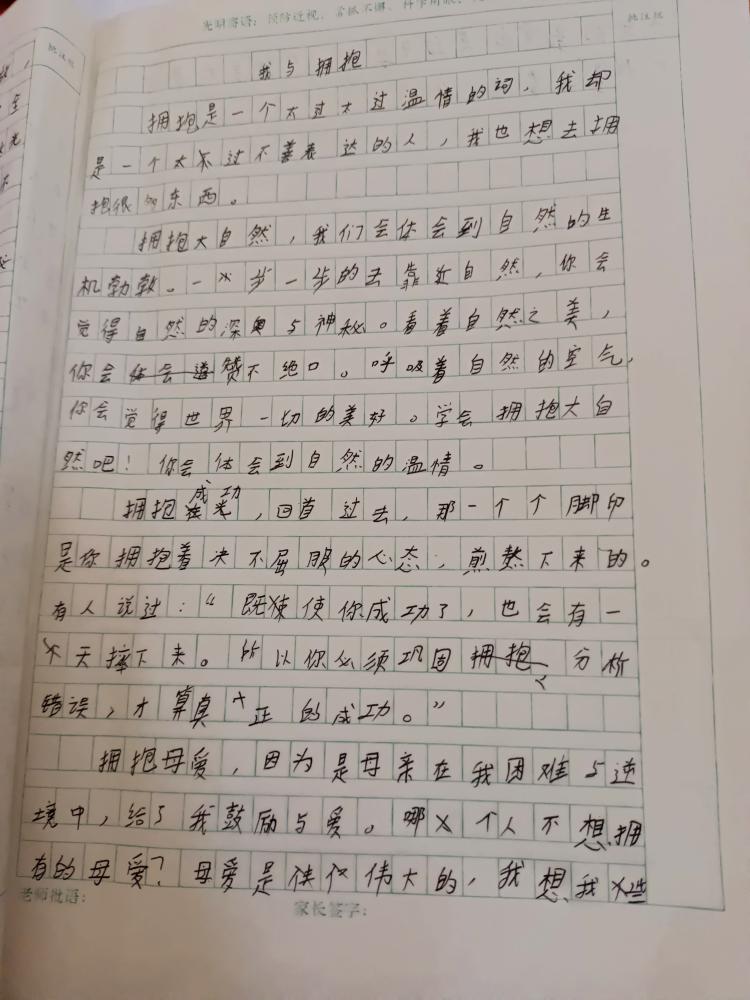 光明寄语：预防近视，常抓不懈、科学用眼、
批注栏
批注栏
我与拥抱
拥抱是一个太过太过温情的词，我却
是一个太过不善表达的人，我也想去拥
抱很多东西。
拥抱大自然，我们会体会到自然的生
机勃勃。一步一步的去靠近自然，你会
觉得自然的深奥与神秘。看着自然之美，
你会赞不绝口。呼吸着自然的空气，
你会觉得世界一切的美好。学会拥抱大自
然吧！你会体会到自然的温情。
拥抱成功，回首过去，那一个个脚印
是你拥抱着决不屈服的心态，煎熬下来的。
有人说过：“既使你成功了，也会有一
天摔下来。所以你必须巩固分析
错误，才算真正的成功。”
拥抱母爱，因为是母亲在我困难与逆
境中，给了我鼓励与爱。哪个人不想拥
有的母爱？母爱是伟大的，我想我
老师批语：
家长签字：